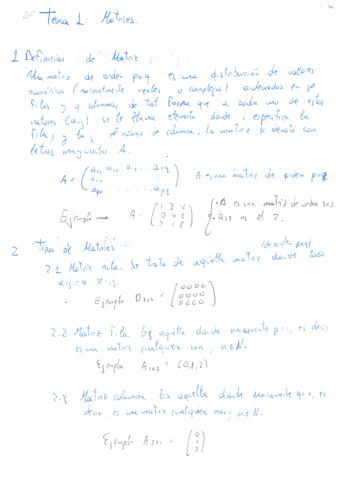 Tema 1: Matrices.
1 Definicion de Matriz
Una matriz de orden pxq es una distribución de valores
numéricos (normalmente reales o complejos) ordenados en p
filas y q columnas, de tal forma que a cada uno de estos
valores (aij) se le llama elemento donde i especifica la
fila, y la j el número de columna. La matriz se denota con
letras mayusculas A.
A = A es una matriz de orden pxq
Ejemplo → A = A es una matriz de orden
es el 2.
2 Tipos de Matrices (de orden pxq)
2.1 Matriz nula. Se trata de aquella matriz donde todo
aij = 0 ∀ i,j.
Ejemplo = (0000
0000
0000)
2.2 Matriz Fila. Es aquella donde unicamente p=1, es decir
es una matriz cualquiera 1xn, n∈N.
Ejemplo A1x3 = (0,1,2)
2.3 Matriz columna. Es aquella donde unicamente q=1, es
decir, es una matriz cualquiera nx1, n∈N.
Ejemplo A3x1 = (0
1
2)